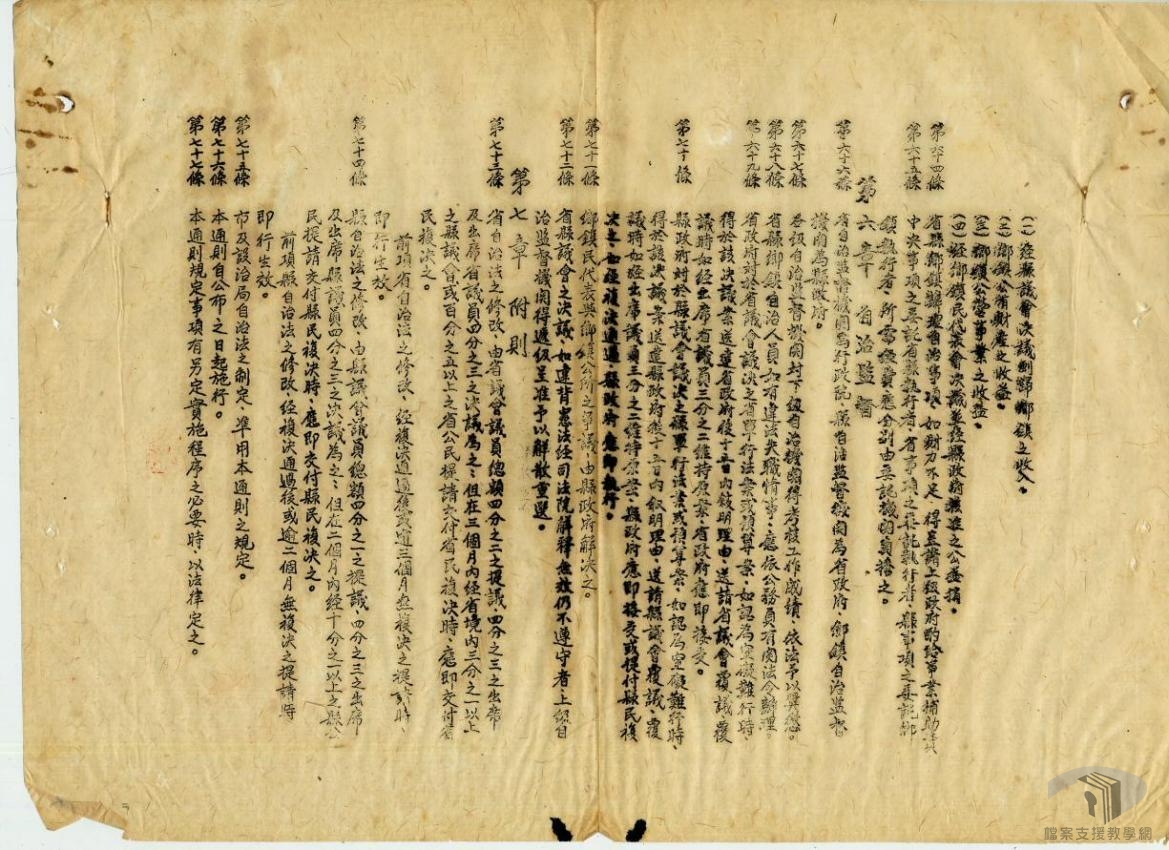 (一)經縣議會決議劃歸鄉鎮之收入。
(二)鄉鎮公有財產之收益。
(三)鄉鎮公營事業之收益。
(四)經鄉鎮民代表會決議並經縣政府核准之公益捐。
第六十四條 省縣鄉鎮辦理自治事項,如財力不足,得呈請上級政府酌給事業補助費
第六十五條 中央事項之委託省縣執行者,省事項之委託縣執行者,縣事項之委託鄉
鎮執行者,所需經費,應分別由委託機關負擔之。
第六章 自治監督
第六十六條 省自治監督機關為行政院,縣自治監督機關為省政府,鄉鎮自治監督
機關為縣政府。
第六十七條 各級自治監督機關對下級自治機關得考核工作成績,依法予以獎懲。
第六十八條 省縣鄉鎮自治人員,如有違法失職情事,應依公務員有關法令辦理
第六十九條 省政府對於省議會議決之省單行法案或預算案,如認為窒礙難行時,
得於該決議案送達省政府後十五日內敘明理由,送請省議會覆議,覆
議時如經出席省議員三分之二維持原案,省政府應即接受。
第七十條 縣政府對於縣議會議決之縣單行法案或預算案,如認為窒礙難行時,
得於該決議案送達縣政府後十五日內敘明理由,送請縣議會覆議,覆
議時如經出席議員三分之二維持原案,縣政府應即接受或提付縣民複
決之,如經複決通過,縣政府應即執行。
第七十一條 鄉鎮民代表與鄉鎮公所之爭議,由縣政府解決之。
第七十二條 省縣議會之決議,如違背憲法經司法院解釋無效仍不遵守者,上級自
治監督機關得遞級呈准予以解散重選。
第七章 附則
第七十三條 省自治法之修改,由省議會議員總額四分之二之提議,四分之三之出席
及出席省議員四分之三之決議為之,但在三個月內經省境內三分之一以上
之縣議會或百分之五以上之省公民提請交付省民複決時,應即交付省
民複決之。
前項省自治法之修改,經複決通過後或逾三個月無複決之提請時,
即行生效。
第七十四條 縣自治法之修改,由縣議會議員總額四分之一之提議,四分之三之出席
及出席縣議員四分之三之決議為之,但在二個月內經十分之一以上之縣公
民提請交付縣民複決時,應即交付縣民複決之。
前項縣自治法之修改,經複決通過後或逾二個月無複決之提請時
即行生效。
第七十五條 市及設治局自治法之制定,準用本通則之規定。
第七十六條 本通則自公布之日起施行。
第七十七條 本通則規定事項有另定實施程序之必要時,以法律定之。
檔案支援教學網